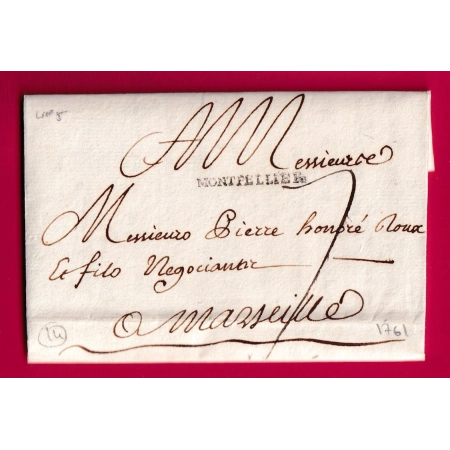 A Messieurs
MONTPELLIER
Messieurs Pierre honoré Roux
Et fils Negociants
a Marseille
14
1761